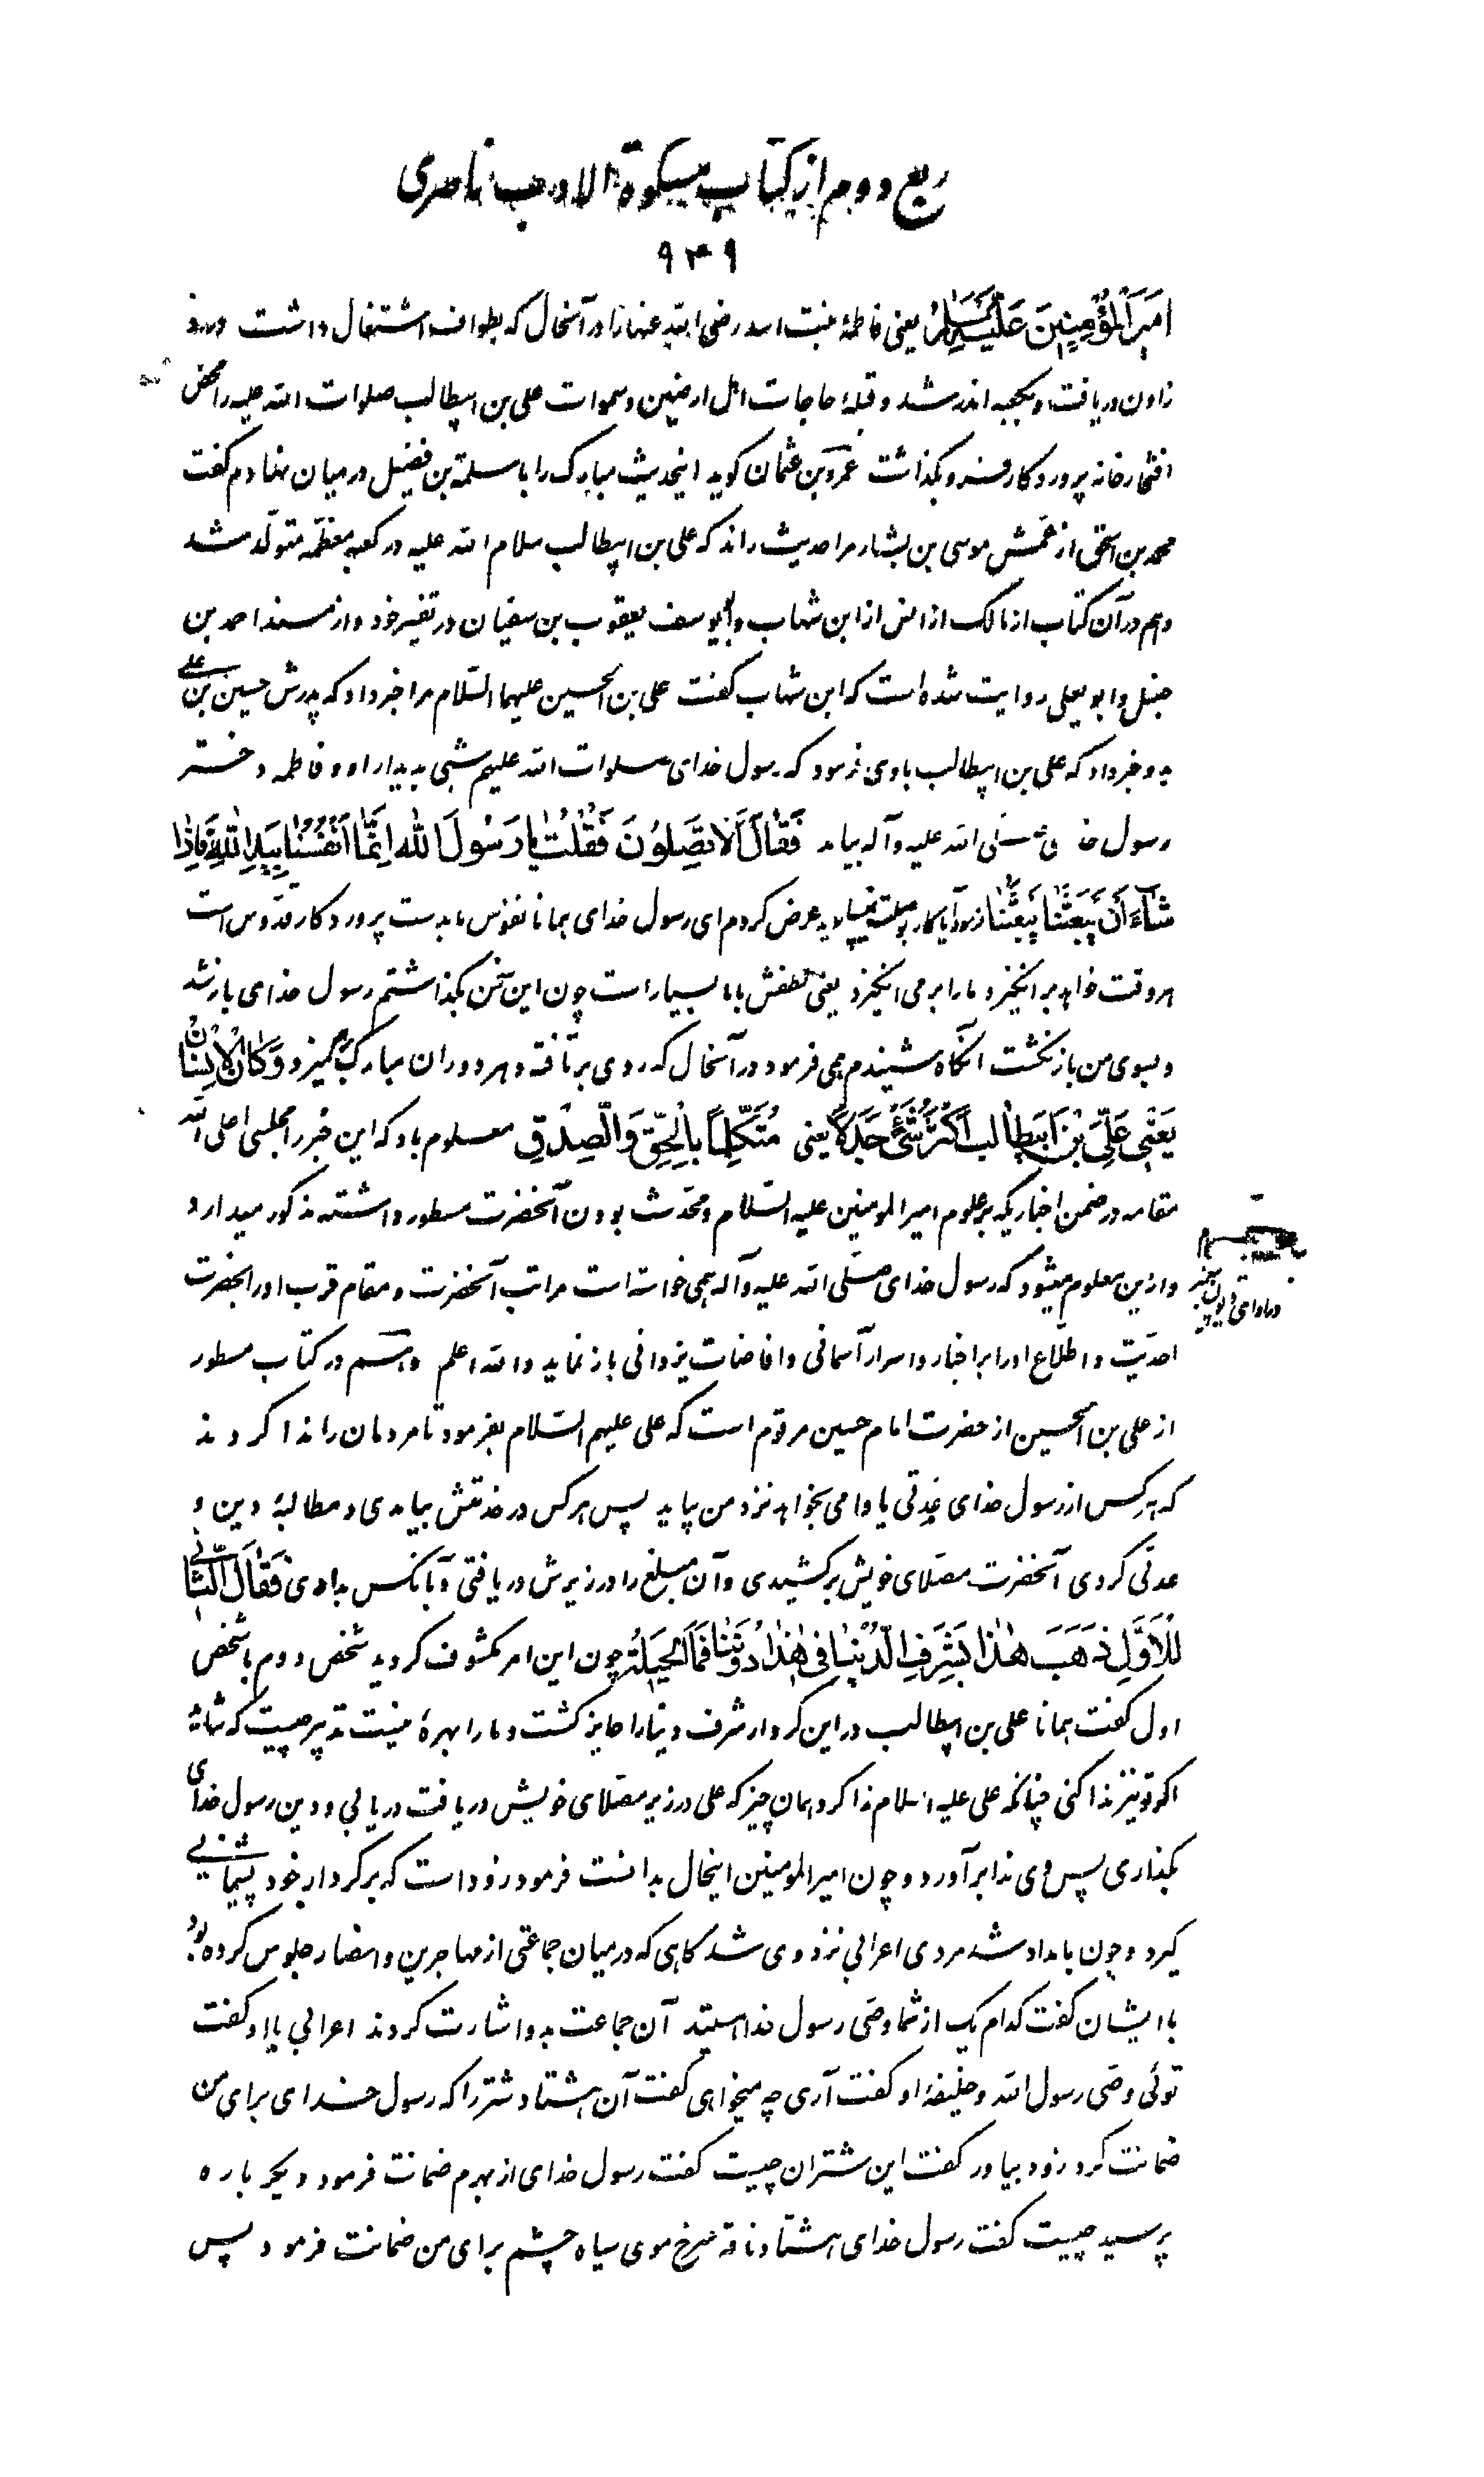 ربع دوم از کتاب مشکوة الادب ناصری
۹۳۹
اَمیرَ الْمُؤْمِنینَ عَلَیْهِ السَّلامُ یعنی فاطمهٔ بنت اسد رضی الله عنها را در آنحال که بطواف اشتغال داشت درد
زادن دریافت و بکعبه اندر شد و قبلهٔ حاجات اهل ارضین و سموات علی بن ابیطالب صلوات الله علیه را محض
افتخار خانه پروردگار فرو بگذاشت عمرو بن عثمان گوید اینحدیث مبارک را با سلمة بن فضیل در میان نهادم گفت
محمد بن اسحق از عمش موسی بن بشار مرا حدیث راند که علی بن ابیطالب سلام الله علیه در کعبه معظمه متولد شد
و هم در آن کتاب از مالک از انس از ابن شهاب و ابو یوسف یعقوب بن سفیان در تفسیر خود و از مسند احمد بن
حنبل و ابو یعلی روایت شده است که ابن شهاب گفت علی بن الحسین علیهما السلام مرا خبر داد که پدرش حسین بن علی
بدو خبر داد که علی بن ابیطالب با وی فرمود که رسول خدای صلوات الله علیهم شبی بدیدار او و فاطمه دختر
رسول خدای صلی الله علیه و آله بیامد فَقالَ اَلا تُصَلُّونَ فَقُلْتُ یا رَسُولَ اللهِ اِنَّما اَنْفُسُنا بِیَدِ اللهِ فَاِذا
شاءَ اَنْ یَبْعَثَنا یَبْعَثُنا فرمود آیا نماز عرض کردم ای رسول خدای همانا نفوس ما بدست پروردگار قدوس است
هر وقت خواهد برانگیزد ما را برمی انگیزد یعنی لطفش با ما بسیار است چون این سخن بگذاشتم رسول خدای باز شد
و بسوی من باز نگشت آنگاه شنیدم همی فرمود در آنحال که روی برتافته و هر دو ران مبارک میزد وَ کانَ الْاِنْسانُ
یَعْنی عَلِیَّ بْنَ اَبیطالِب اَکْثَرَ شَیْءٍ جَدَلاً یعنی مُتَکَلِّماً بِالْحَقِّ وَ الصِّدْقِ معلوم باد که این خبر را مجلسی اعلی الله
مقامه در ضمن اخباریکه بر علوم امیر المومنین علیه السلام و محدث بودن آنحضرت مسطور داشته مذکور میدارد
و از این معلوم میشود که رسول خدای صلی الله علیه و آله همی خواسته است مراتب آنحضرت و مقام قرب او را بحضرت
احدیت و اطلاع او را بر اخبار و اسرار آسمانی و افاضات یزدانی باز نماید و الله اعلم و هم در کتاب مسطور
از علی بن الحسین از حضرت امام حسین مرقوم است که علی علیهم السلام بفرمود تا مردمان را ندا کردند
که هر کس از رسول خدای عدتی یا وامی بخواهد نزد من بیاید پس هر کس در خدمتش بیامدی و مطالبهٔ دین و
عدتی کردی آنحضرت مصلای خویش برکشیدی و آن مبلغ را در زیرش دریافتی و بآنکس بدادی فَقالَ الثّانی
لِلْاَوَّلِ ذَهَبَ هٰذا بِشَرَفِ الدُّنْیا فی هٰذا دُونَنا فَمَا الْحیلَةُ چون این امر مکشوف گردید شخص دوم با شخص
اول گفت همانا علی بن ابیطالب در این کردار شرف دنیا را حایز گشت و ما را بهرهٔ نیست تدبیر چیست که
اگر تو نیز ندا کنی چنانکه علی علیه السلام ندا کرد همان چیز که علی در زیر مصلای خویش دریافت دریابی و دین رسول خدای
بگذاری پس وی ندا برآورد و چون امیر المومنین اینحال بدانست فرمود زود است که بر کردار خود پشیمانی
گیرد و چون بامداد شد مردی اعرابی نزد وی شد گاهی که در میان جماعتی از مهاجرین و انصار جلوس کرده بود
با ایشان گفت کدام یک از شما وصی رسول خدا هستید آن جماعت بدو اشارت کردند اعرابی با او گفت
توئی وصی رسول الله و خلیفهٔ او گفت آری چه میخواهی گفت آن هشتاد شتر را که رسول خدای برای من
ضمانت کرد زود بیاور گفت این شتران چیست گفت رسول خدای از بهرم ضمانت فرمود دیگر باره
پرسید چیست گفت رسول خدای هشتاد ناقه سرخ موی سیاه چشم برای من ضمانت فرمود پس